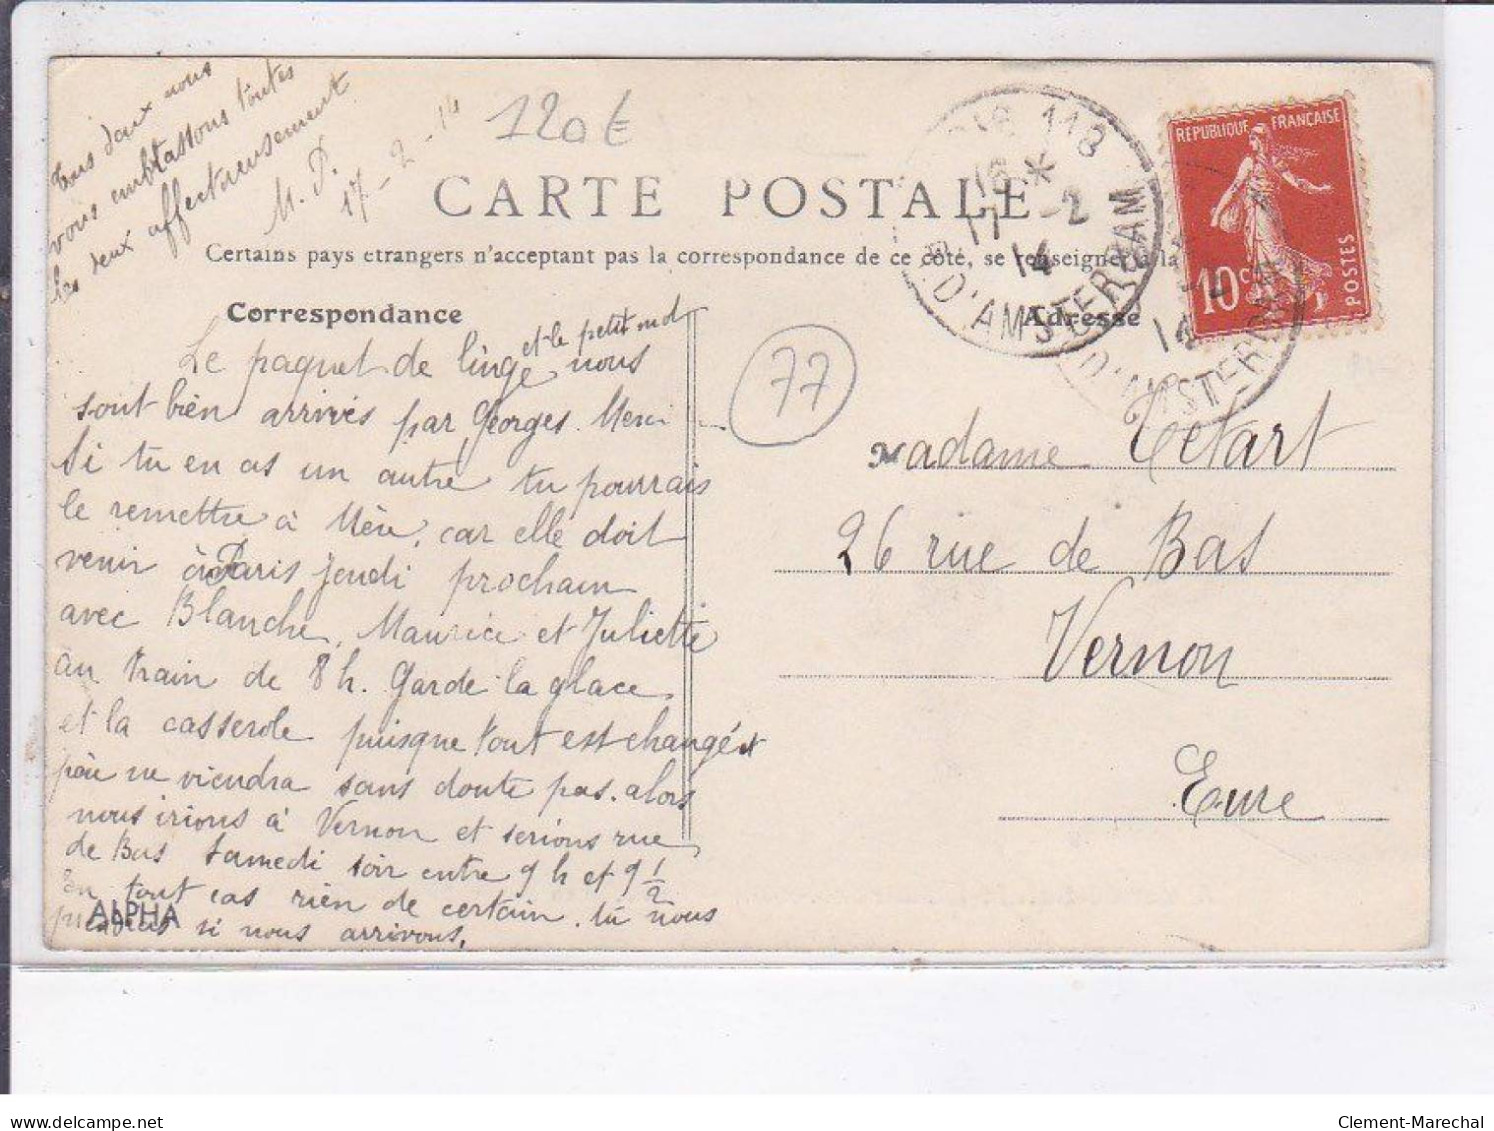 Tous deux nous
vous embrassons toutes
les deux affectueusement
M. P.
17-2-14
120€
CARTE POSTALE
Certains pays etrangers n'acceptant pas la correspondance de ce côté, se renseigner à la
Correspondance
Adresse
118
16 *
17 -2
14
R. D'AMSTERDAM
14
D'AMSTERDAM
REPUBLIQUE FRANÇAISE
10c
POSTES
77
et le petit mot
Le paquet de linge nous
sont bien arrivés par Georges. Merci
Si tu en as un autre tu pourrais
le remettre à Mère, car elle doit
venir à Paris Jeudi prochain
avec Blanche, Maurice et Juliette
au train de 8 h. Garde la glace
et la casserole puisque tout est changé et
père ne viendra sans doute pas. alors
nous irions à Vernon et serions rue
de Bas Samedi soir entre 9 h et 9 1/2
En tout cas rien de certain. tu nous
si nous arrivons.
ALPHA
Madame Tetart
26 rue de Bas
Vernon
Eure
delcampe.net
Clement-Marechal